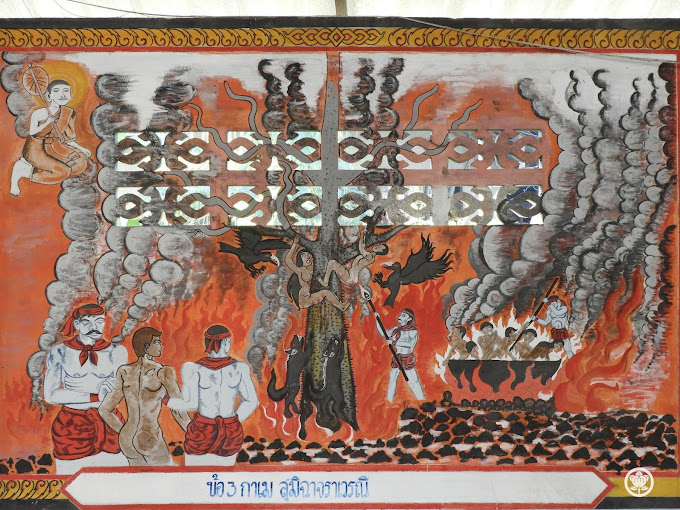 ข้อ 3 กาเม สุมิฉาจราเวรณิ